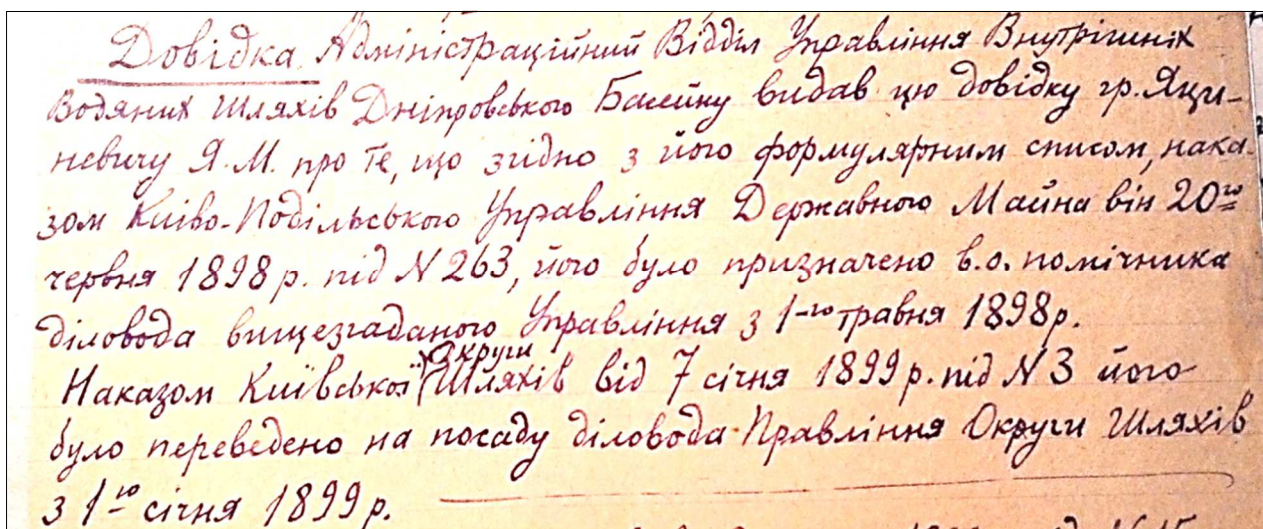 Довідка. Адміністраційний Відділ Управління Внутрішніх
Водяних Шляхів Дніпровського Басейну видав цю довідку гр. Яци-
невичу Я. М. про те, що згідно з його формулярним списом, нака-
зом Київо-Подільського Управління Державного Майна він 20го
червня 1898 р. під N 263, його було призначено в.о. помічника
діловода вищезгаданого Управління з 1-го травня 1898 р.
Округи
Наказом Київської Шляхів від 7 січня 1899 р. під N 3 його
було переведено на посаду діловода Правління Округи Шляхів
з 1го січня 1899 р.